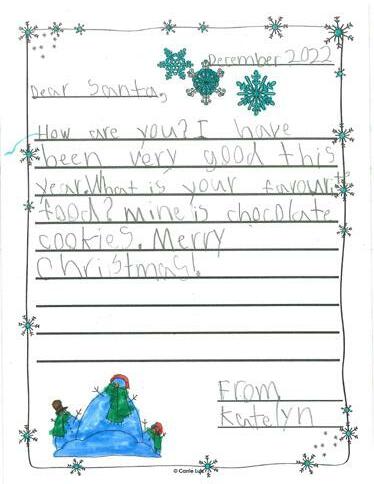 December 2022
Dear Santa,
How are you? I have
been very good this
year. What is your favourite
food? mine is chocolate
cookies. Merry
Christmas!
From
Katelyn
© Carrie Lutz